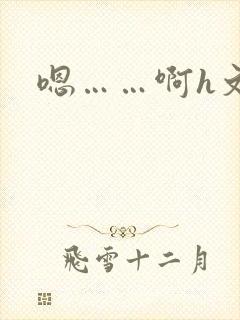 嗯……啊h文
飛雪十二月